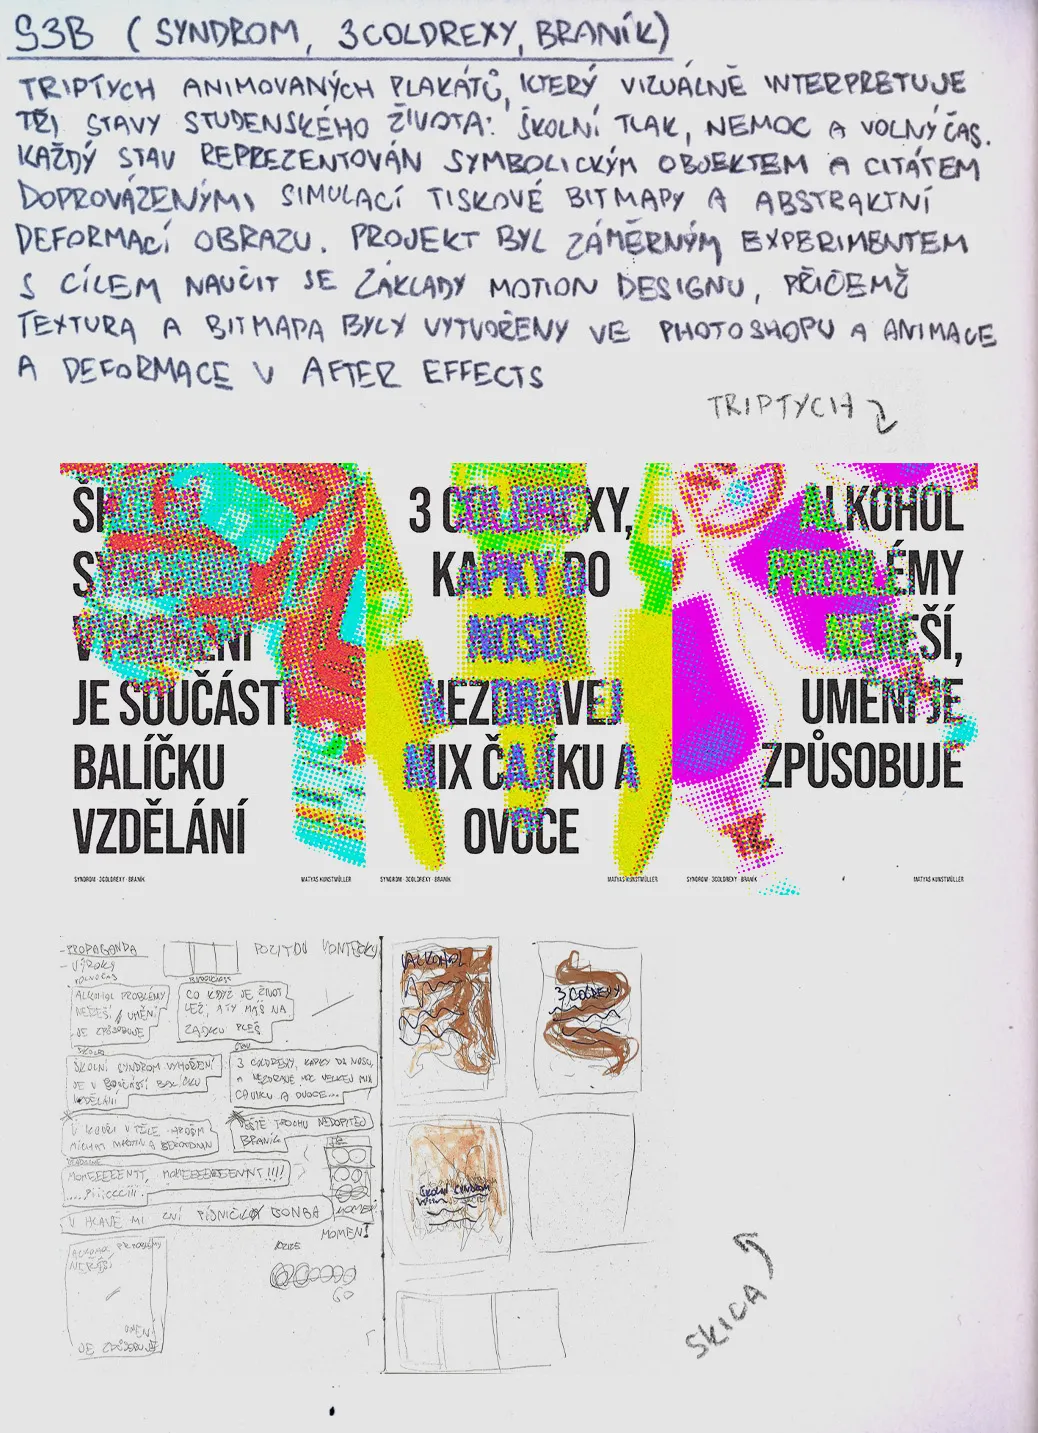 S3B (SYNDROM, 3COLDREXY, BRANÍK)
TRIPTYCH ANIMOVANÝCH PLAKÁTŮ, KTERÝ VIZUÁLNĚ INTERPRETUJE
TŘI STAVY STUDENSKÉHO ŽIVOTA: ŠKOLNÍ TLAK, NEMOC A VOLNÝ ČAS.
KAŽDÝ STAV REPREZENTOVÁN SYMBOLICKÝM OBJEKTEM A CITÁTEM
DOPROVÁZENÝMI SIMULACÍ TISKOVÉ BITMAPY A ABSTRAKTNÍ
DEFORMACÍ OBRAZU. PROJEKT BYL ZÁMĚRNÝM EXPERIMENTEM
S CÍLEM NAUČIT SE ZÁKLADY MOTION DESIGNU, PŘIČEMŽ
TEXTURA A BITMAPA BYLY VYTVOŘENY VE PHOTOSHOPU A ANIMACE
A DEFORMACE V AFTER EFFECTS
TRIPTYCH
ŠKOLNÍ
SYNDROM
VYHOŘENÍ
JE SOUČÁSTÍ
BALÍČKU
VZDĚLÁNÍ
SYNDROM · 3COLDREXY · BRANÍK
MATYAS KUNSTMÜLLER
3 COLDREXY,
KAPKY DO
NOSU,
NEZDRAVEJ
MIX ČAJÍKU A
OVOCE
SYNDROM · 3COLDREXY · BRANÍK
MATYAS KUNSTMÜLLER
ALKOHOL
PROBLÉMY
NEŘEŠÍ,
UMĚNÍ JE
ZPŮSOBUJE
SYNDROM · 3COLDREXY · BRANÍK
MATYAS KUNSTMÜLLER
-PROPAGANDA
- VÝROKY
VOLNÝ ČAS
ALKOHOL PROBLÉMY
NEŘEŠÍ, UMĚNÍ
JE ZPŮSOBUJE
CO KDYŽ JE ŽIVOT
LEŽ, A TY MÁŠ NA
ZADKU PLEŠ
ŠKOLNÍ SYNDROM VYHOŘENÍ
JE V SOUČÁSTÍ BALÍČKU
VZDĚLÁNÍ
3 COLDREXY, KAPKY DO NOSU,
MIX
ČAJÍKU A OVOCE...
JEŠTĚ TROCHU NEDOPITÉO
BRANÍK
V HLAVĚ MI ZNÍ PÍSNIČKA
MOMENT
ALKOHOL PROBLÉMY
NEŘEŠÍ
UMĚNÍ
JE ZPŮSOBUJE
GO
ALKOHOL
3 COLDREXY
ŠKOLNÍ SYNDROM
SKICA